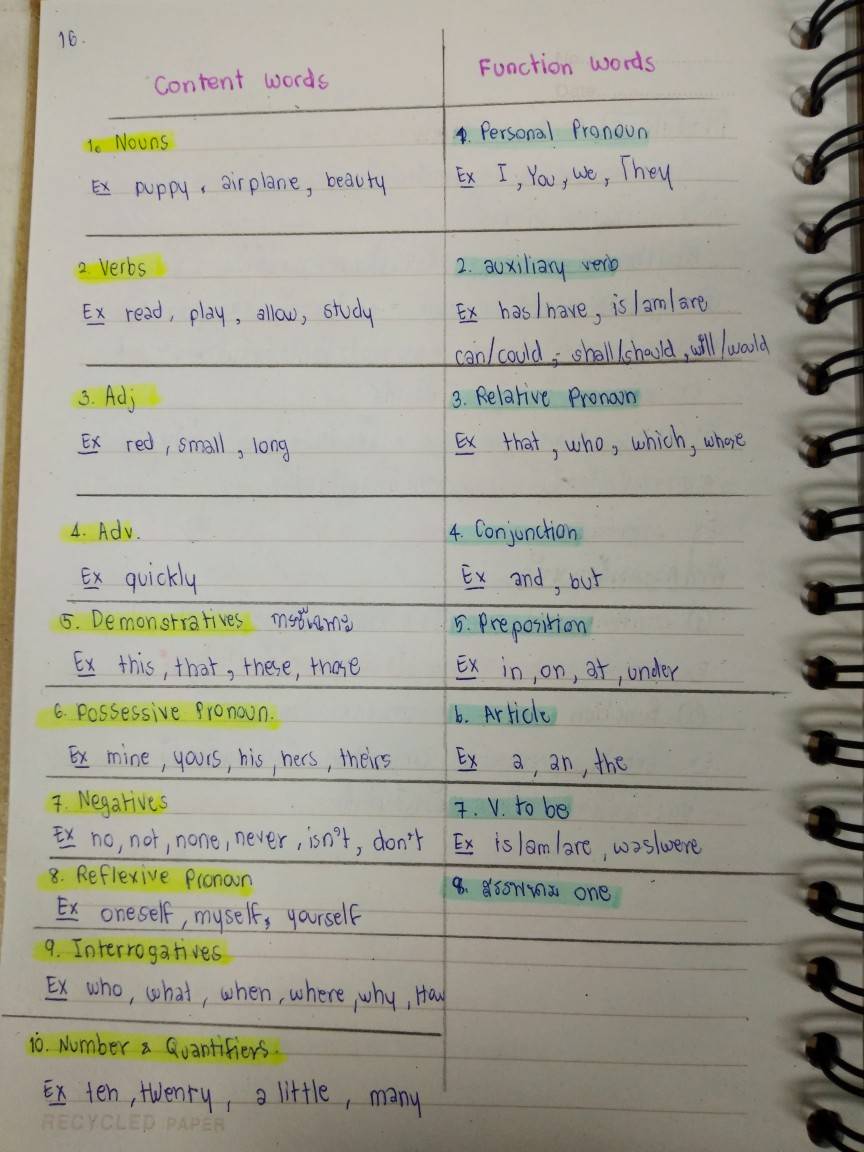 16.
Content words
1. Nouns
Ex puppy, airplane, beauty
2. Verbs
Ex read, play, allow, study
3. Adj
Ex red, small, long
4. Adv.
Ex quickly
5. Demonstratives
Ex this, that, these, those
6. Possessive Pronoun.
Ex mine, yours, his, hers, theirs
7. Negatives
Ex no, not, none, never, isn't, don't
8. Reflexive Pronoun
Ex oneself, myself, yourself
9. Interrogatives
Ex who, what, when, where, why, How
10. Number & Quantifiers.
Ex ten, twenty, a little, many
RECYCLED PAPER
Function words
1. Personal Pronoun
Ex I, You, We, They
2. auxiliary verb
Ex has/have, is/am/are
can/could, shall/should, will/would
3. Relative Pronoun
Ex that, who, which, whose
4. Conjunction
Ex and, but
5. Preposition
Ex in, on, at, under
6. Article
Ex a, an, the
7. V. to be
Ex is/am/are, was/were
8. สรรพนาม one